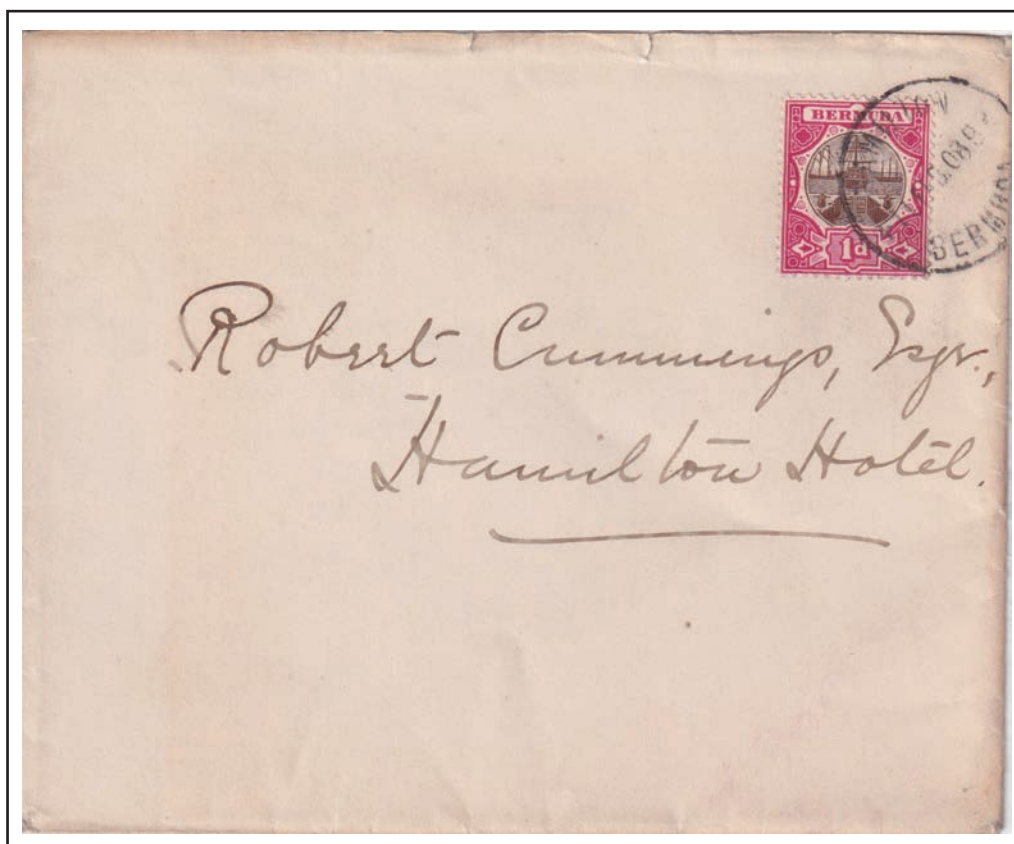 BERMUDA
1d
BERMUDA
Robert Cummings, Esqr.,
Hamilton Hotel.